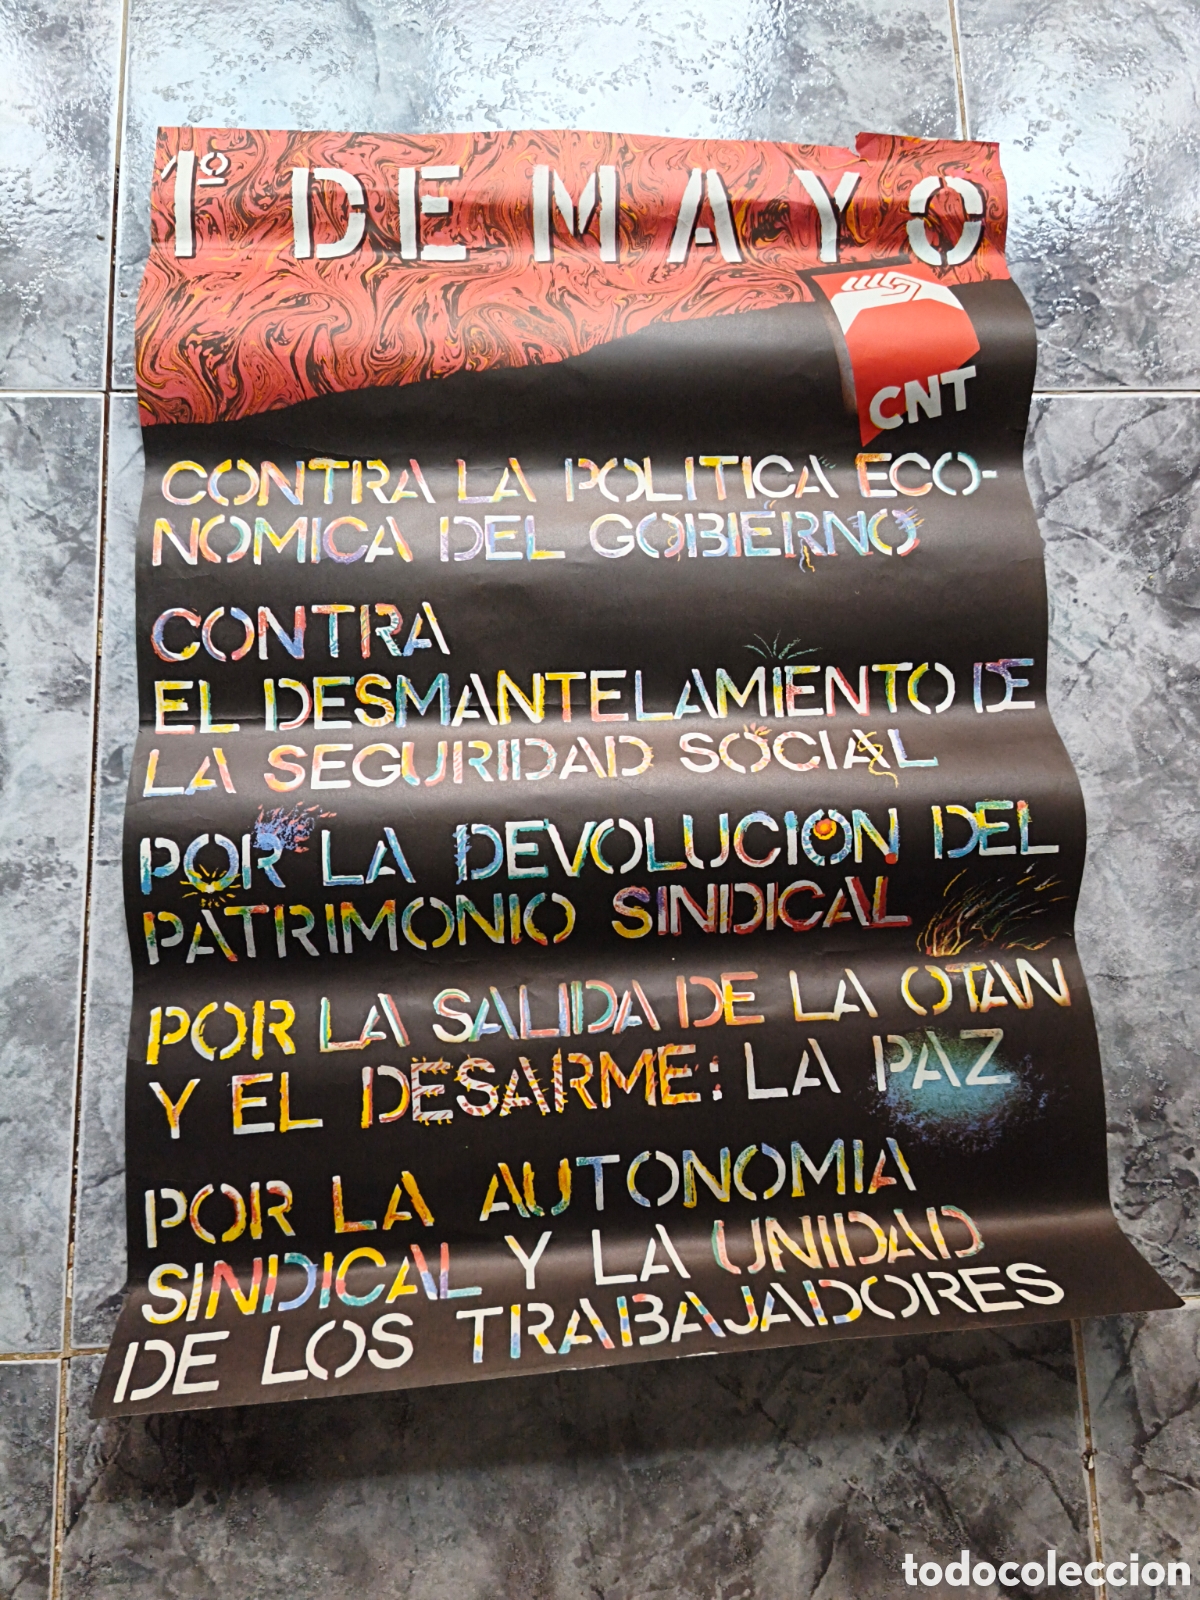 1º DE MAYO
CNT
CONTRA LA POLITICA ECO-
NOMICA DEL GOBIERNO
CONTRA
EL DESMANTELAMIENTO DE
LA SEGURIDAD SOCIAL
POR LA DEVOLUCION DEL
PATRIMONIO SINDICAL
POR LA SALIDA DE LA OTAN
Y EL DESARME: LA PAZ
POR LA AUTONOMIA
SINDICAL Y LA UNIDAD
DE LOS TRABAJADORES
todocoleccion